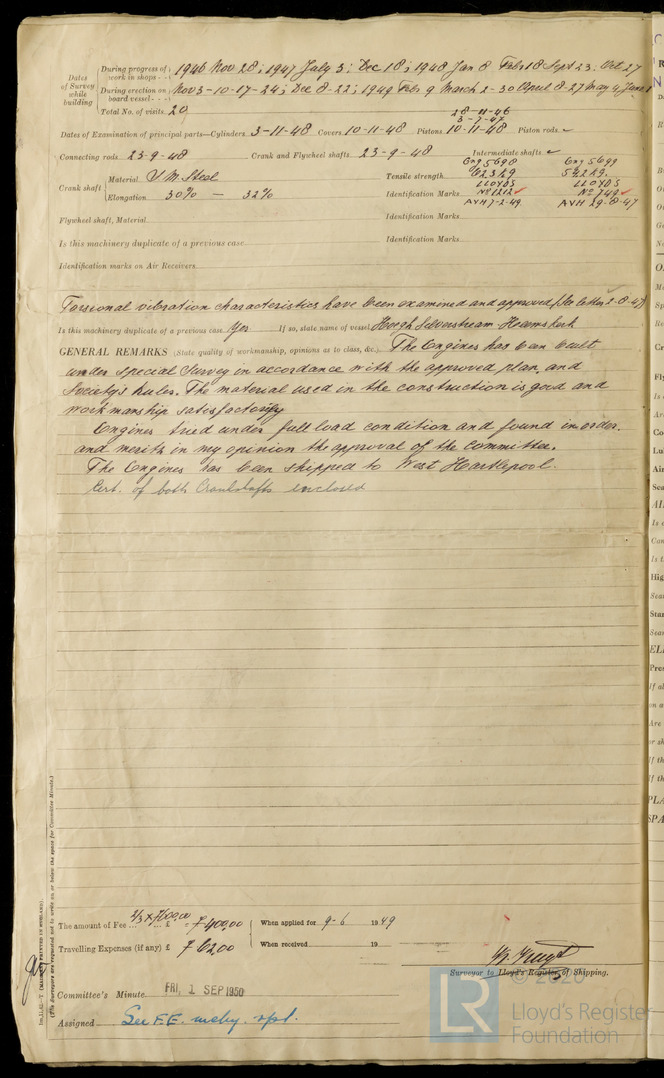 Dates of Survey while building
During progress of work in shops - - 1946 Nov 28; 1947 July 3; Dec 18; 1948 Jan 8 Feb 18 Sept 23: Oct 27
During erection on board vessel - - Nov 3-10-17-24; Dec 8-22; 1949 Feb 9 March 2-30 April 8-27 May 4 June 1
Total No. of visits 20
28-11-46
3-7-47
Dates of Examination of principal parts—Cylinders 3-11-48 Covers 10-11-48 Pistons 10-11-48 Piston rods ✓
Connecting rods 23-9-48 Crank and Flywheel shafts 23-9-48 Intermediate shafts ✓
Crank shaft
Material S.M. Steel Tensile strength
Elongation 30% — 32% Identification Marks
Eng 5698 Eng 5699
LLOYDS LLOYDS
No 1212 ✓ No 749 ✓
AVH 7-2-49 AVH 29-8-47
Flywheel shaft, Material Identification Marks
Is this machinery duplicate of a previous case Identification Marks
Identification marks on Air Receivers
Torsional vibration characteristics have been examined and approved (See letter 2-8-47)
Is this machinery duplicate of a previous case Yes If so, state name of vessel Hoegh Silverstream Heemskerk
GENERAL REMARKS (State quality of workmanship, opinions as to class, &c.) The Engines has been built
under special Survey in accordance with the approved plan, and
Society's Rules. The material used in the construction is good and
workmanship satisfactory
Engines tried under full load condition and found in order.
and merits in my opinion the approval of the Committee.
The Engines has been shipped to West Hartlepool.
Cert. of both Crankshafts enclosed
The amount of Fee £ 2/3 × f600,00 = f400,00 When applied for 9-6 1949
Travelling Expenses (if any) £ f62,00 When received 19
Surveyor to Lloyd's Register of Shipping.
Committee's Minute FRI, 1 SEP 1950
Assigned See F.E. mchy. rpt.
(The Surveyors are requested not to write on or below the space for Committee Minute.)
© 2020
LR
Lloyd's Register
Foundation